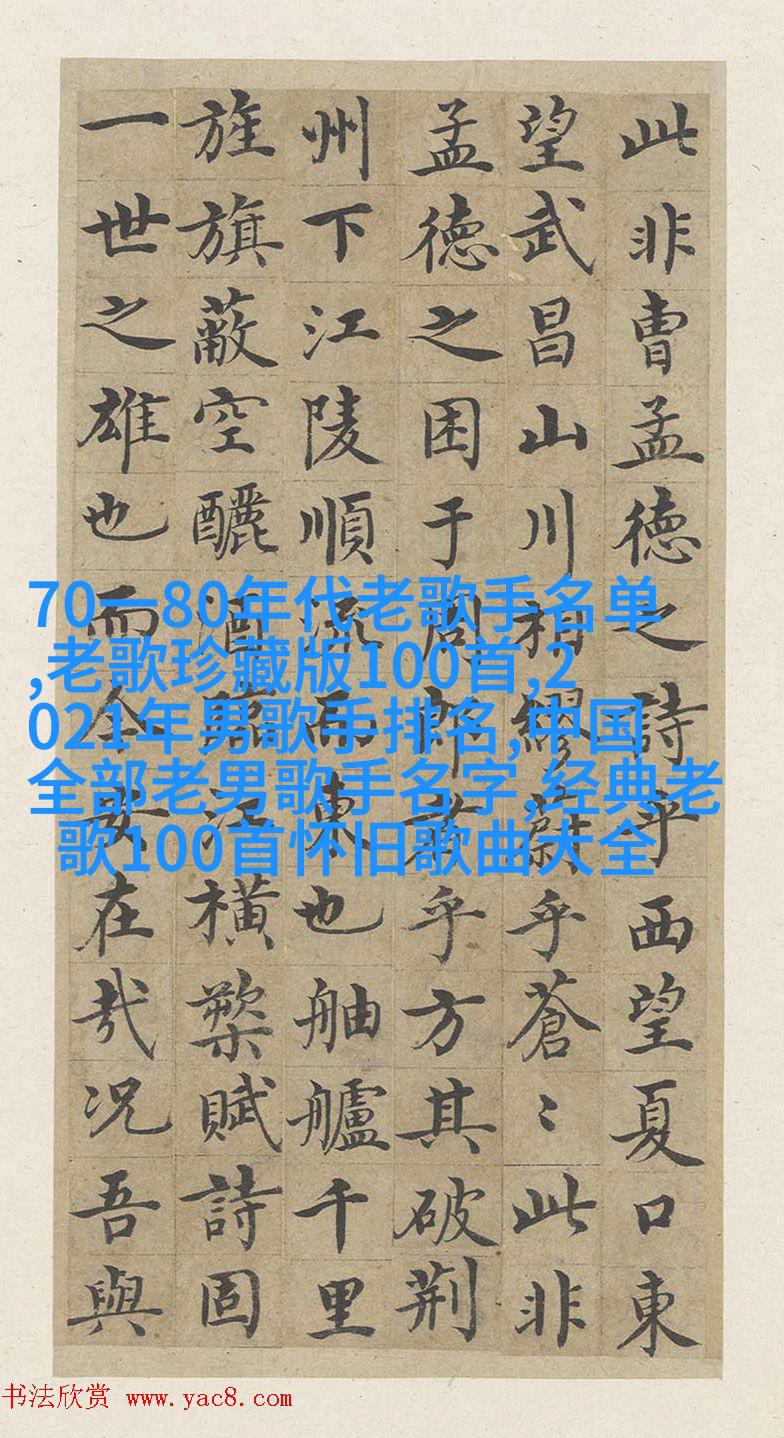 此非曹孟德之詩乎西望夏口東
望武昌山川相繆蔚乎蒼〻此非
孟德之困于周郎者乎方其破荆
州下江陵順流而東也舳艫千里
旌旗蔽空釃酒臨江横槊賦詩固
一世之雄也而今安在哉况吾與
70一80年代老歌手名单
,老歌珍藏版100首,2
021年男歌手排名,中国
全部老男歌手名字,经典老
歌100首怀旧歌曲大全
书法欣赏 www.yac8.com